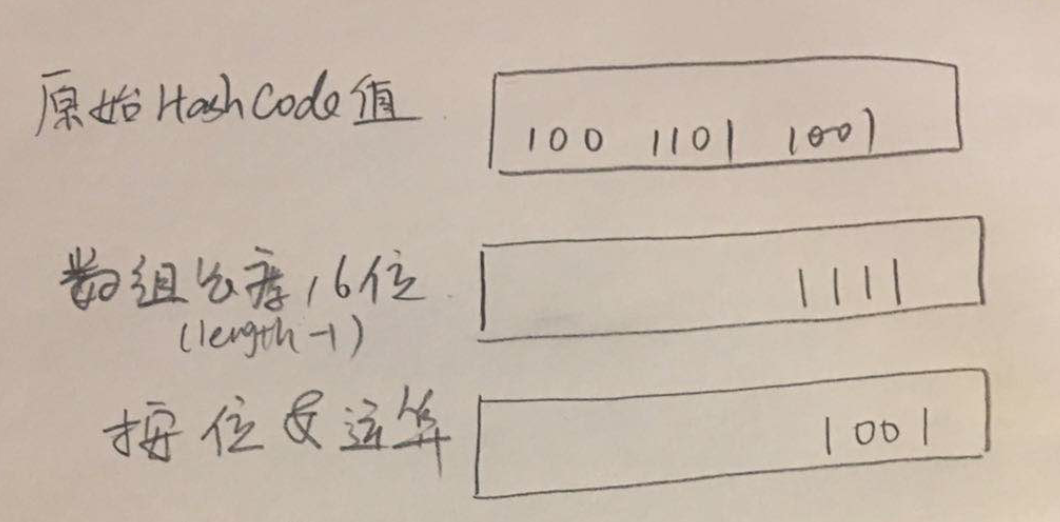 原始HashCode值 100 1101 1001
数组长度16位 1111
(length-1)
按位&运算 1001